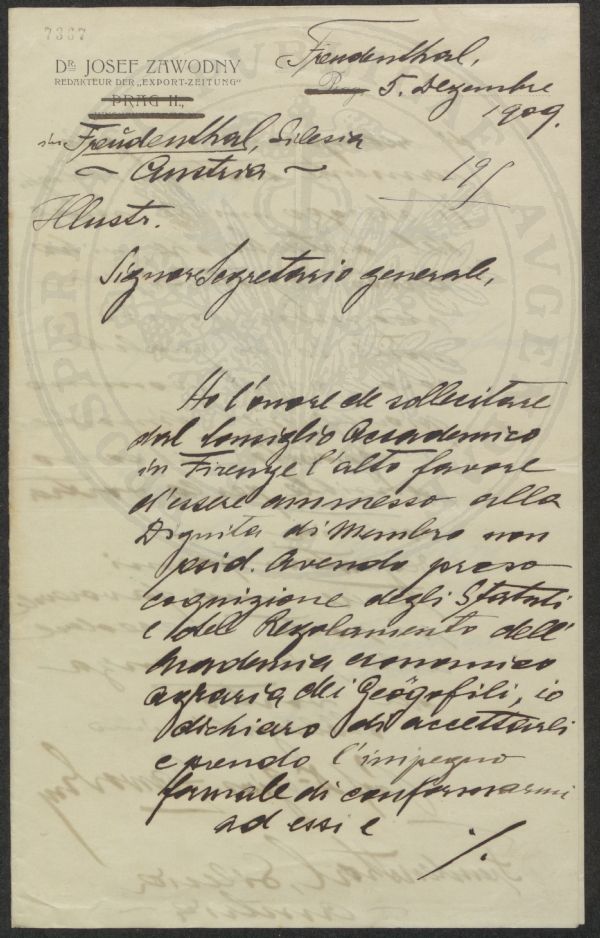 7367
DR JOSEF ZAWODNY
REDAKTEUR DER „EXPORT-ZEITUNG"
PRAG II.,
Freudenthal,
Prag 5. Dezembre
1909.
in Freudenthal, Silesia
~ Austria ~
19
Illustr.
Signor Segretario generale,
Ho l'onore de sollecitare
dal Consiglio Accademico
in Firenze l'alto favore
d'essere ammesso alla
Dignita di Membro non
resid. Avendo preso
cognizione degli Statuti
e dell Regolamento dell'
Academia economico
agraria dei Geögofili, io
dichiaro di accettarli
e prendo l'impegno
formale di conformarmi
ad essi e ./.